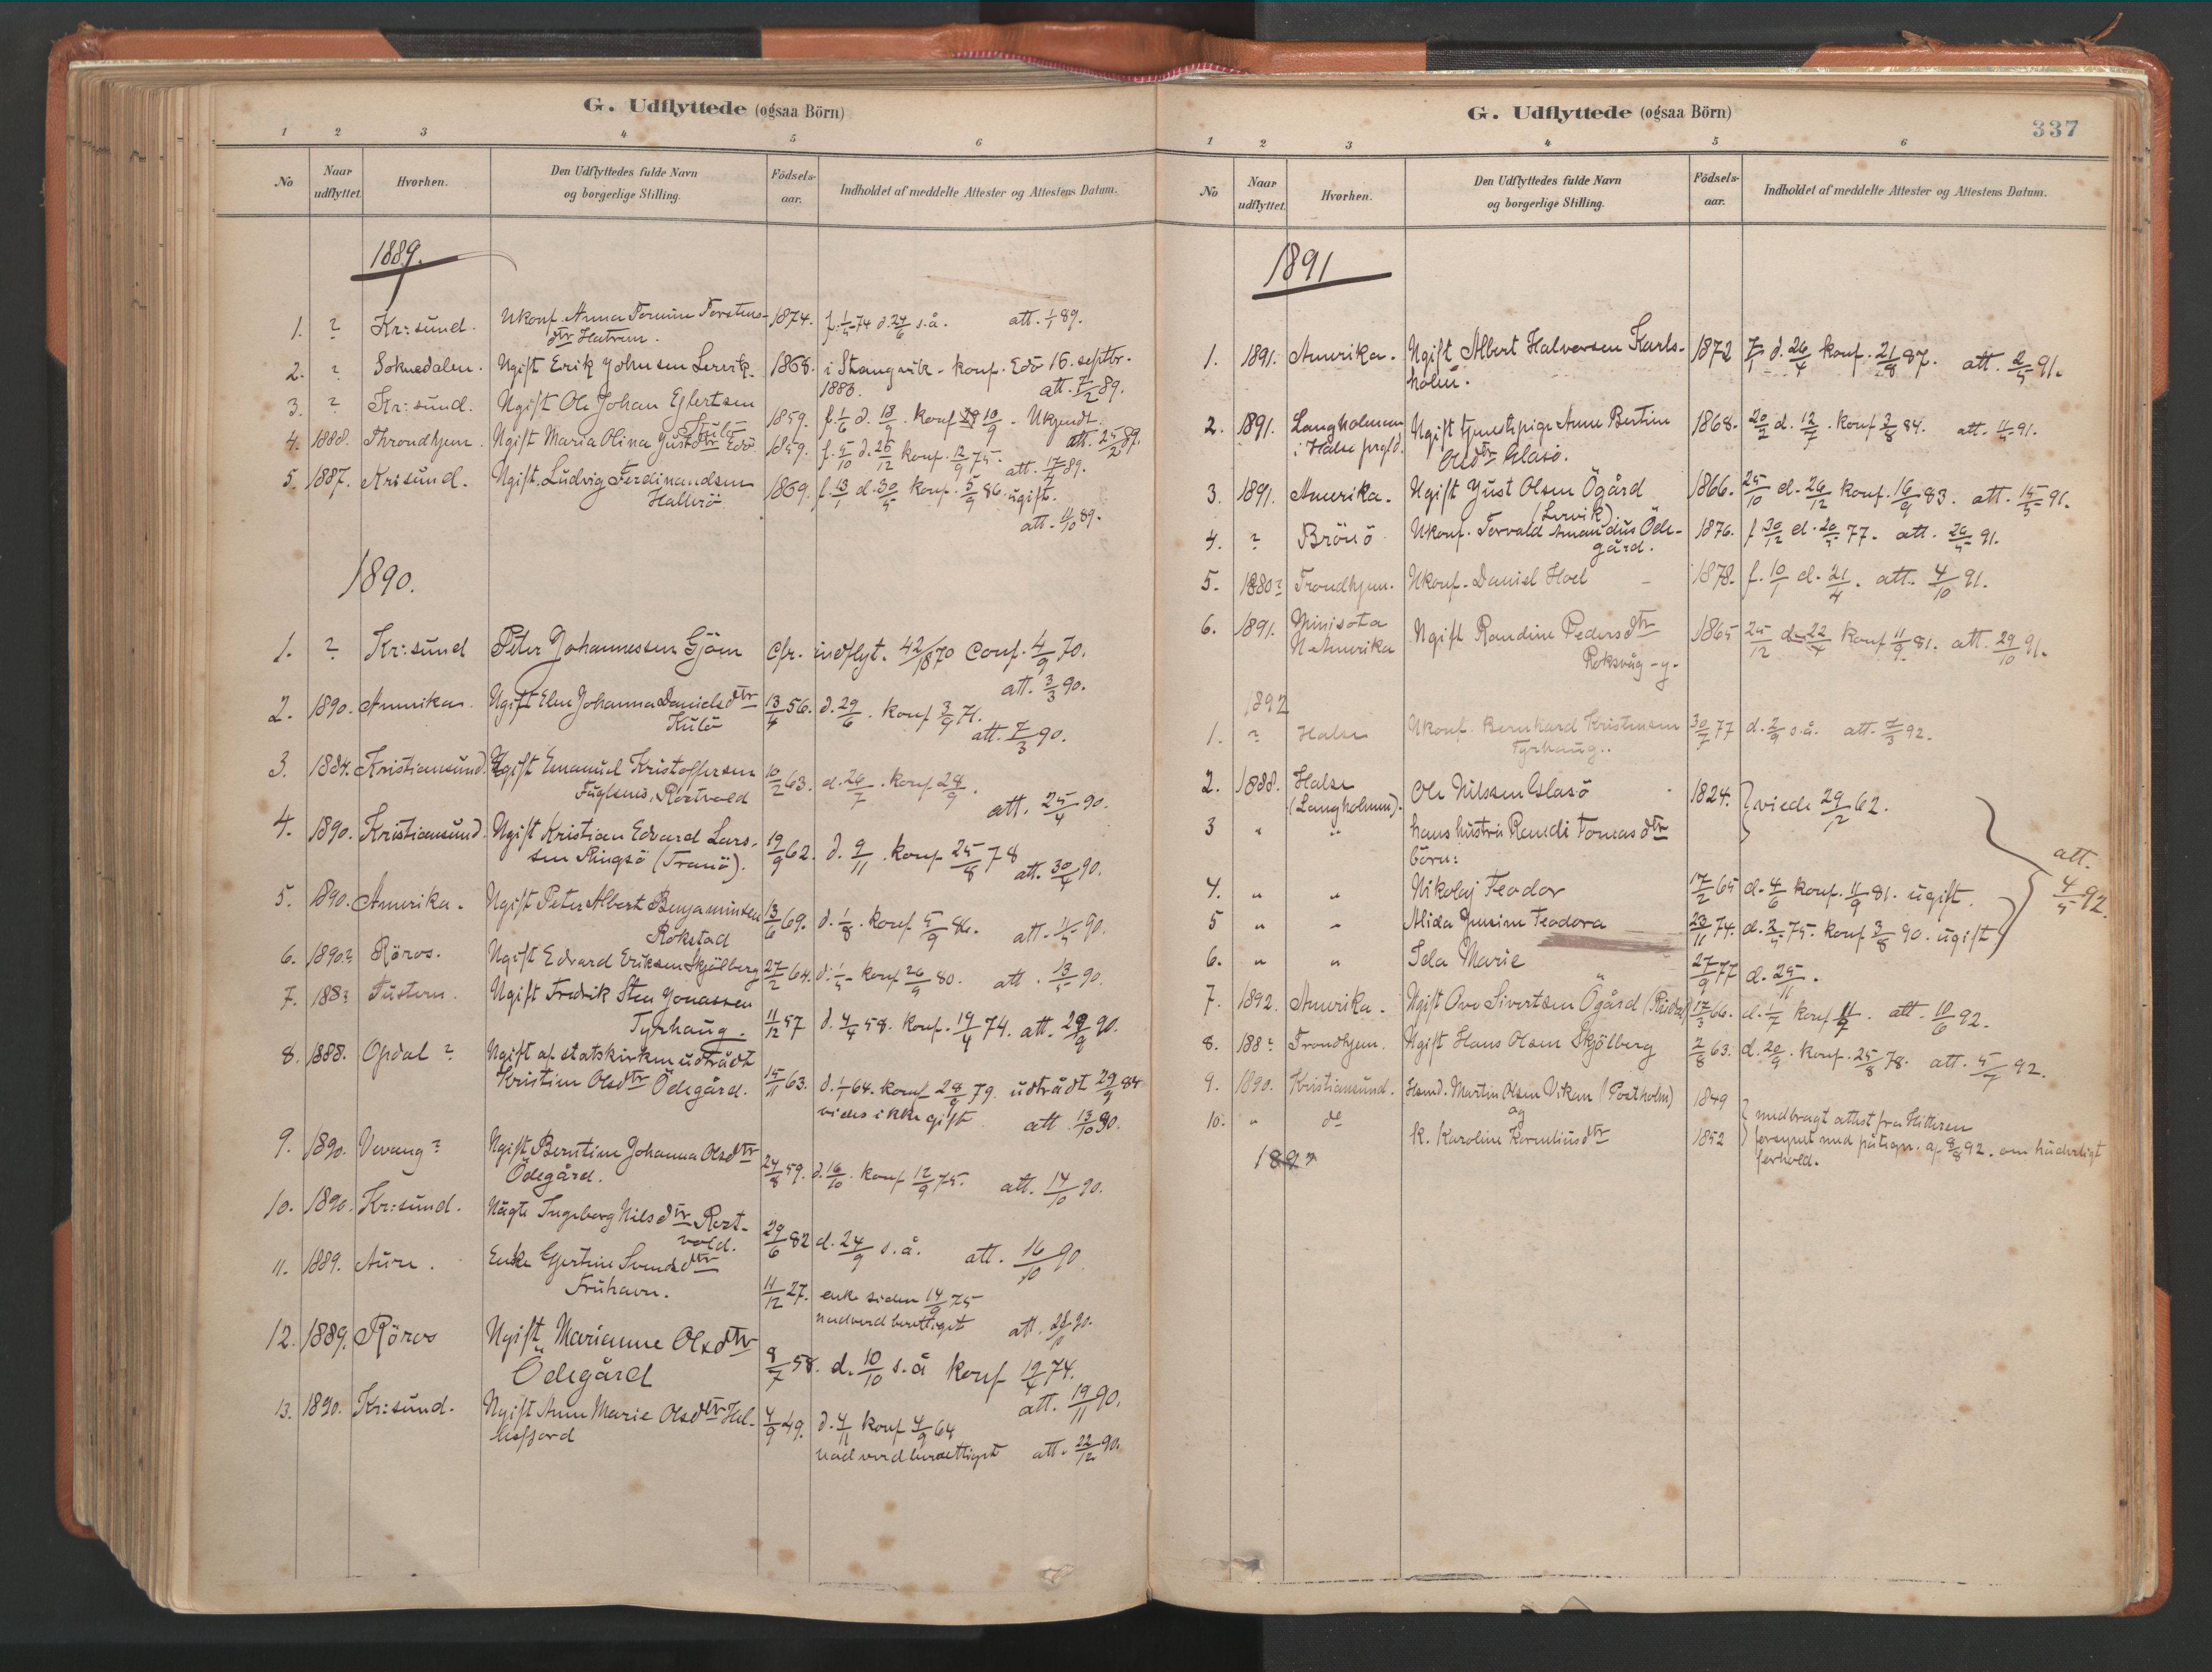 G. Udflyttede (ogsaa Börn)
1 2 3 4 5 6
No Naar udflyttet. Hvorhen. Den Udflyttedes fulde Navn og borgerlige Stilling. Födsels-aar. Indholdet af meddelte Attester og Attestens Datum.
1889.
1. ? Kr:sund. Ukonf. Anna Torstens- 1874. att. 1/1 89.
dtr Hatrem.
2. ? Soknedalen. Ugift Erik Johnsen Lervik. 1868. i Stangvik - konf. Edö 16. septbr.
1883. att. 7/2 89.
3. ? Kr:sund. Ugift Ole Johan Ejlertsen 1859. f. 1/6 d. 18/9. konf 10/9 - Ukjendt.
Kulö att. 25/2 89.
4. 1888. Throndhjem. Ugift Maria Olina Justdtr Edö 1859. f. 5/10 d. 26/12 konf. 12/9 75.
att. 17/7 89.
5. 1887. Krisund. Ugift. Ludvig Ferdinandsen 1869. f. 13/1 d. 30/5 konf. 5/9 86. ugift.
Hallerö att. 11/10 89.
1890.
1. ? Kr:sund Peter Johannessen Gjöen Cfr. indflyt. 42/1870 Conf. 4/9 70.
att. 3/3 90.
2. 1890. Amerika. Ugift Elen Johanna Danielsdtr 13/4 56. d. 29/6. konf 3/9 71.
Kulö att. 7/3 90.
3. 1884. Kristiansund. Ugift Emanuel Kristoffersen 10/2 63. d. 26/7. konf 28/9.
Fuglenes, Roetvold att. 25/4 90.
4. 1890. Kristiansund. Ugift Kristian Edvard Lars- 19/9 62. d. 9/11. konf 25/8 78
sen Ringsö (Tranö). att. 30/4 90.
5. 1890. Amerika. Ugift Peter Albert Benjaminsen 13/6 69. d. 1/8. konf 5/9 86.
Rokstad att. 11/5 90.
6. 1890? Röros. Ugift Edvard Eriksen Skjölberg 27/2 64. d. 1/5 konf 26/9 80. att. 13/5 90.
7. 188? Tustern. Ugift Fredrik Sten Jonassen
Tyrhaug. 11/12 57 d. 4/4 58. konf. 19/4 74. att. 29/9 90.
8. 1888. Opdal ? Ugift af statskirken udtrådt
Kristine Olsdtr Ödegård. 15/11 63. d. 1/1 64. konf 28/9 79. udtrådt 29/9 84
vides ikke gift. att. 13/10 90.
9. 1890. Vevang ? Ugift Berntine Johanna Olsdtr
Ödegård. 24/8 59. d. 16/10. konf 12/9 75. att. 14/10 90.
10. 1890. Kr:sund. Ingeborg Nilsdtr Roet-
vold. 29/6 82 d. 24/9 s. å. att. 16/10 90.
11. 1889. Aure. Enke Gjertine Svendsdtr
Fruhavn. 11/12 27. enke siden 14/9 75
nadverdberettiget att. 90.
12. 1889. Röros Ugift Marianne Olsdtr
Ödegård 8/7 58. d. 10/10 s. å konf 19/4 74.
att. 19/11 90.
13. 1890. Kr:sund. Ugift Anne Marie Olsdtr Hal- 4/9 49. d. 4/11 konf 4/9 64
lesfjord nadverdberettiget att. 22/12 90.
G. Udflyttede (ogsaa Börn)
337
1 2 3 4 5 6
No Naar udflyttet. Hvorhen. Den Udflyttedes fulde Navn og borgerlige Stilling. Födsels-aar. Indholdet af meddelte Attester og Attestens Datum.
1891
1. 1891. Amerika. Ugift Albert Halvorsen Karls- 1872 7/1 d. 26/4 konf. 21/8 87. att. 2/5 91.
holm.
2. 1891. Langholmen Ugift tjenestepige Anne Bertine 1868. 20/2 d. 12/7. konf 3/8 84. att. 11/5 91.
i Halse prgjld. Olsdtr Glasö.
3. 1891. Amerika. Ugift Just Olsen Ögård 1866. 25/10 d. 26/12 konf. 16/9 83. att. 15/5 91.
(Lervik)
4. ? Brönö Ukonf. Torvald Amandus Öde- 1876. f 30/12 d. 20/5 77. att. 26/5 91.
gård.
5. 1880? Trondhjem. Ukonf. Daniel Hoel - 1878. f. 10/1 d. 21/4. att. 4/10 91.
6. 1891. Minisota Ugift Randine Pedersdtr 1865 25/12 d. 22/4 konf 11/9 81. att. 29/10 91.
N Amerika Roksvåg - y.
1892
1. ? Halse Ukonf. Bernhard Kristensen 30/7 77 d. 2/9 s. å. att. 7/3 92.
Tyrhaug.
2. 1888. Halse Ole Nilssen Glasö 1824. viede 29/12 62.
(Langholmen).
3 " " hans hustru Randi Tomasdtr
börn: att. 4/5 92.
4. " " Nikolaj Teodor 17/2 65 d. 4/6 konf. 11/9 81. ugift.
5 " " Alida Jensine Teodora 23/11 74. d. 2/5 75. konf 3/8 90. ugift
6. " " Ida Marie 27/9 77 d. 25/11.
7. 1892. Amerika. Ugift Ove Sivertsen Ögård 17/3 66. d. 1/7 konf 11/9. att. 10/6 92.
8. 188? Trondhjem. Ugift Hans Olsen Skjölberg 2/8 63. d. 20/9. konf. 25/8 78. att. 5/7 92.
9. 1890. Kristiansund. Husmd. Martin Olsen Vikan (Postholm) 1849
og medbragt attest fra Hitteren
10. " do k. Karoline Korneliusdtr 1852 forsynet med påtegn. af 8/8 92. om huderligt
forhold.
189